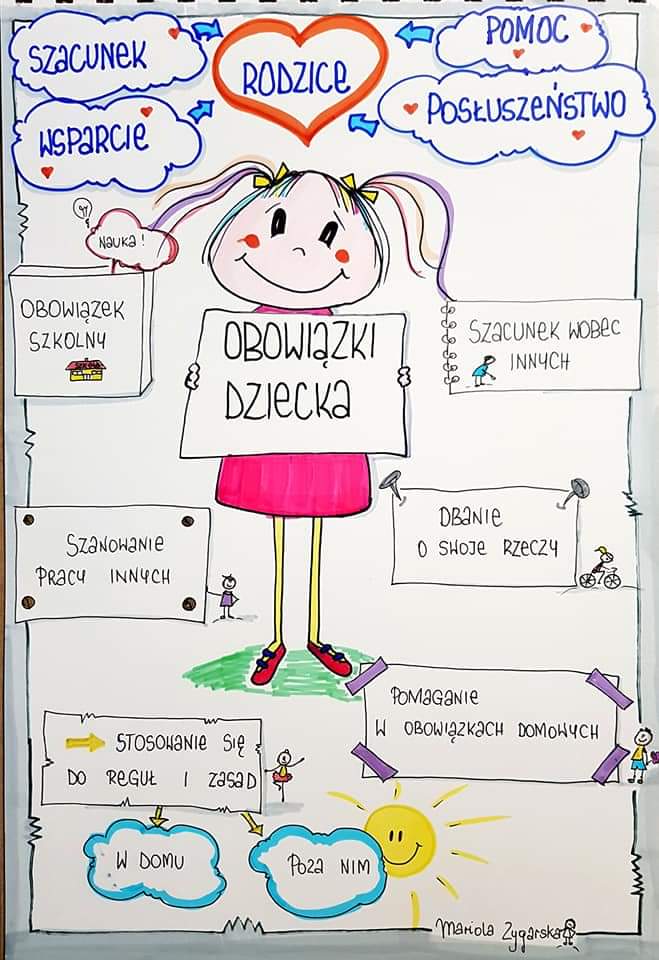 SZACUNEK
RODZICE
POMOC
WSPARCIE
POSŁUSZEŃSTWO
NAUKA!
OBOWIĄZEK
SZKOLNY
SZKOŁA
OBOWIĄZKI
DZIECKA
SZACUNEK WOBEC
INNYCH
SZANOWANIE
PRACY INNYCH
DBANIE
O SWOJE RZECZY
POMAGANIE
W OBOWIĄZKACH DOMOWYCH
STOSOWANIE SIĘ
DO REGUŁ I ZASAD
W DOMU
POZA NIM
Mariola Zygarska